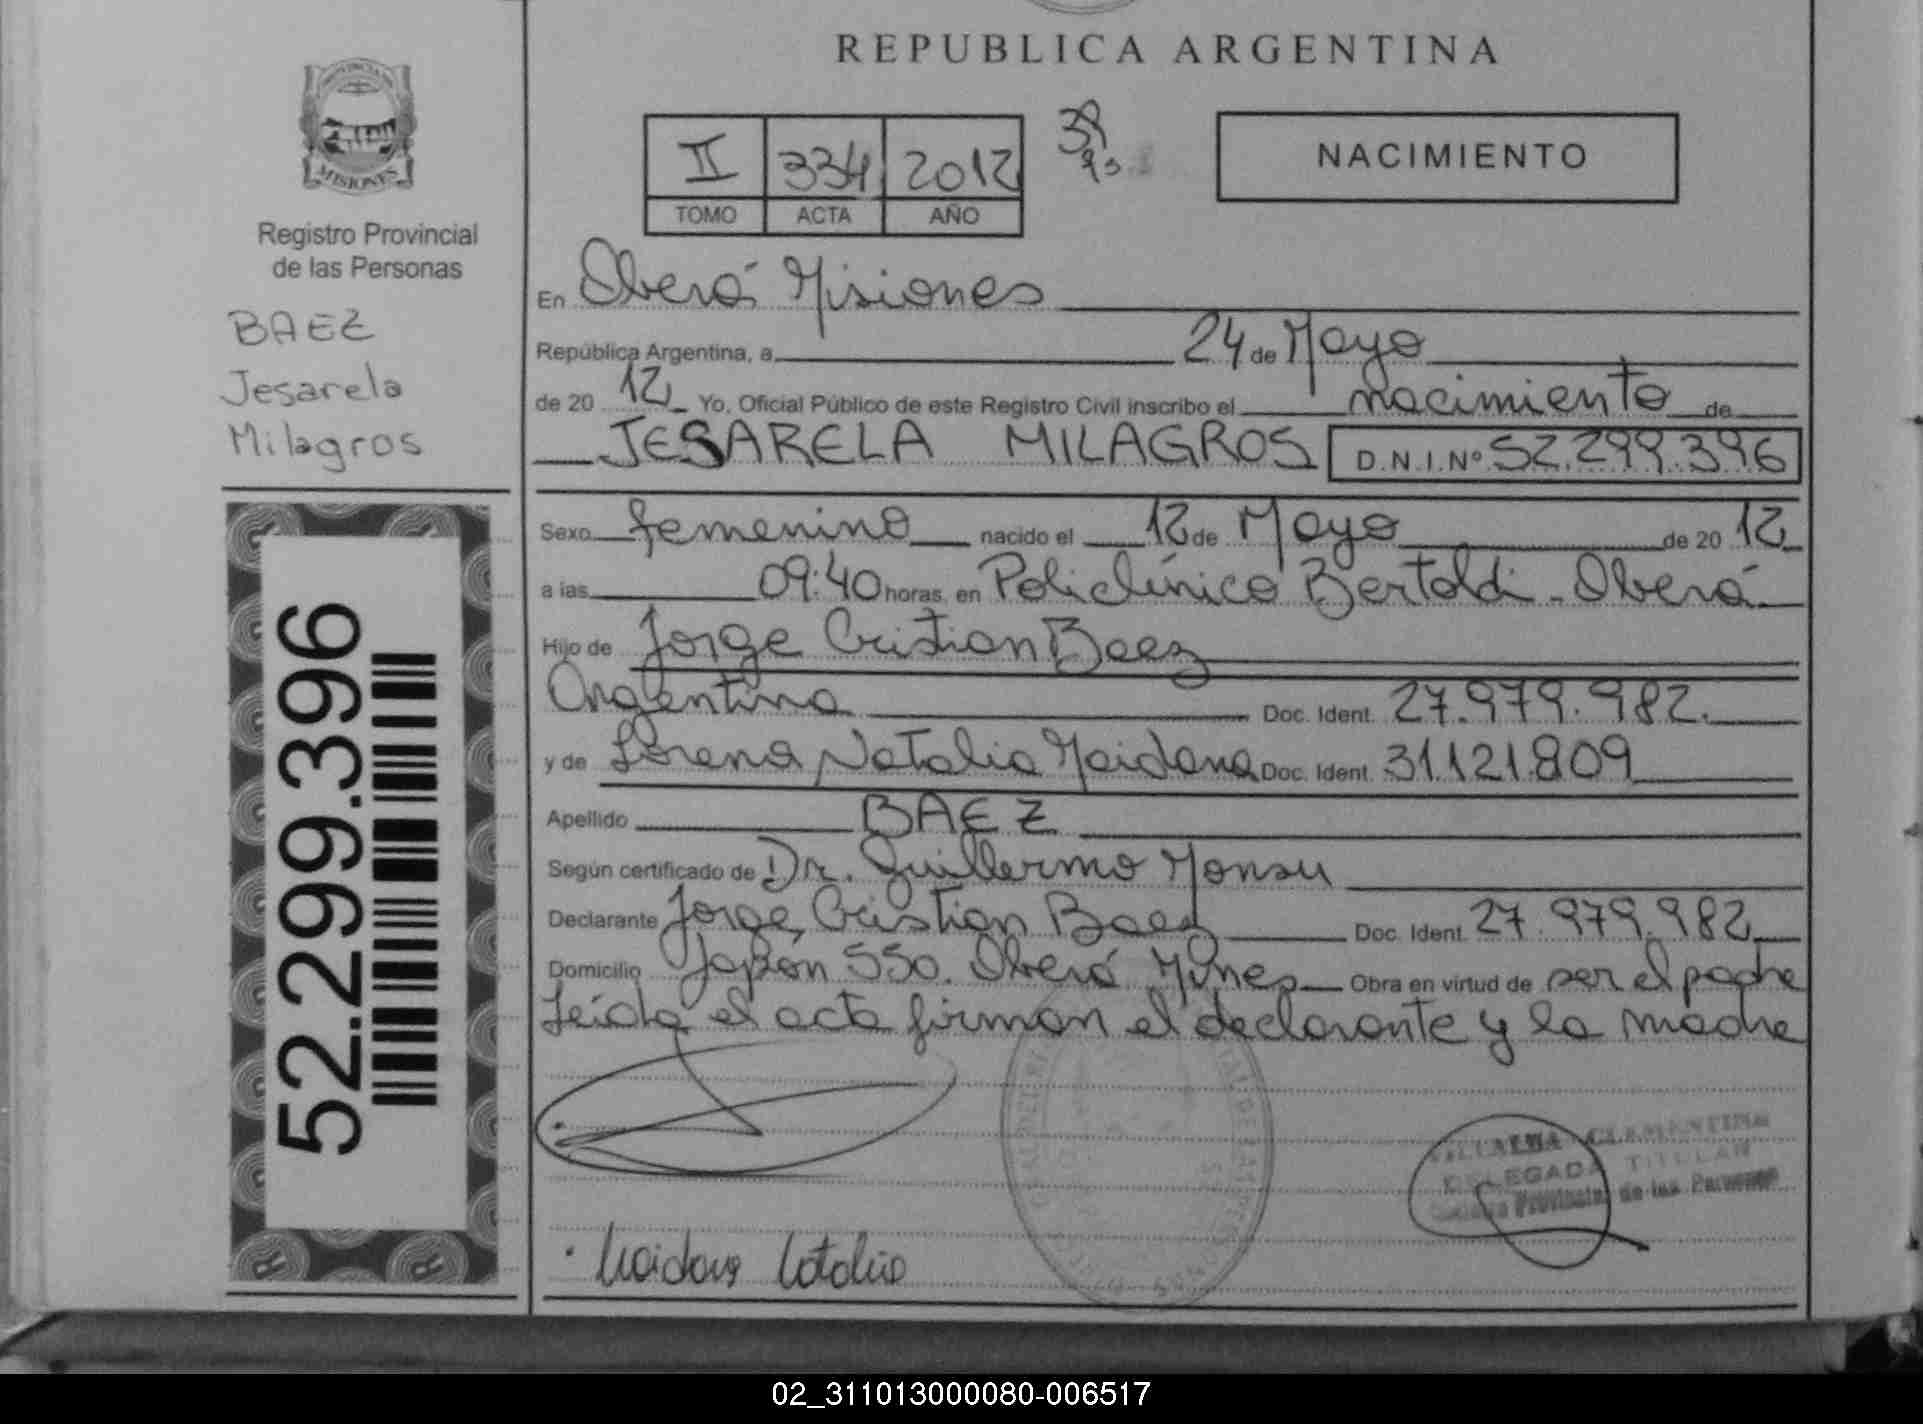 REPUBLICA ARGENTINA
PROVINCIA DE
MISIONES
Registro Provincial
de las Personas
BAEZ
Jesarela
Milagros
52.299.396
II 334 2012
TOMO ACTA AÑO
NACIMIENTO
En Oberá Misiones
República Argentina, a 24 de Mayo
de 20 12 Yo, Oficial Público de este Registro Civil inscribo el nacimiento de
JESARELA MILAGROS D.N.I.Nº 52.299.396
Sexo femenino nacido el 12 de Mayo de 20 12
a las 09:40 horas, en Policlínico Bertoldi - Oberá
Hijo de Jorge Cristian Baez
Argentina Doc. Ident. 27.979.982.
y de Lorena Natalia Maidana Doc. Ident. 31.121.809
Apellido BAEZ
Según certificado de Dr. Guillermo Monsu
Declarante Jorge Cristian Baez Doc. Ident. 27.979.982
Domicilio Japón 550. Oberá Mnes Obra en virtud de ser el padre
Leída el acta firman el declarante y la madre
CLEMENTINA
DELEGADA TITULAR
Provincial de las Personas
02_311013000080-006517